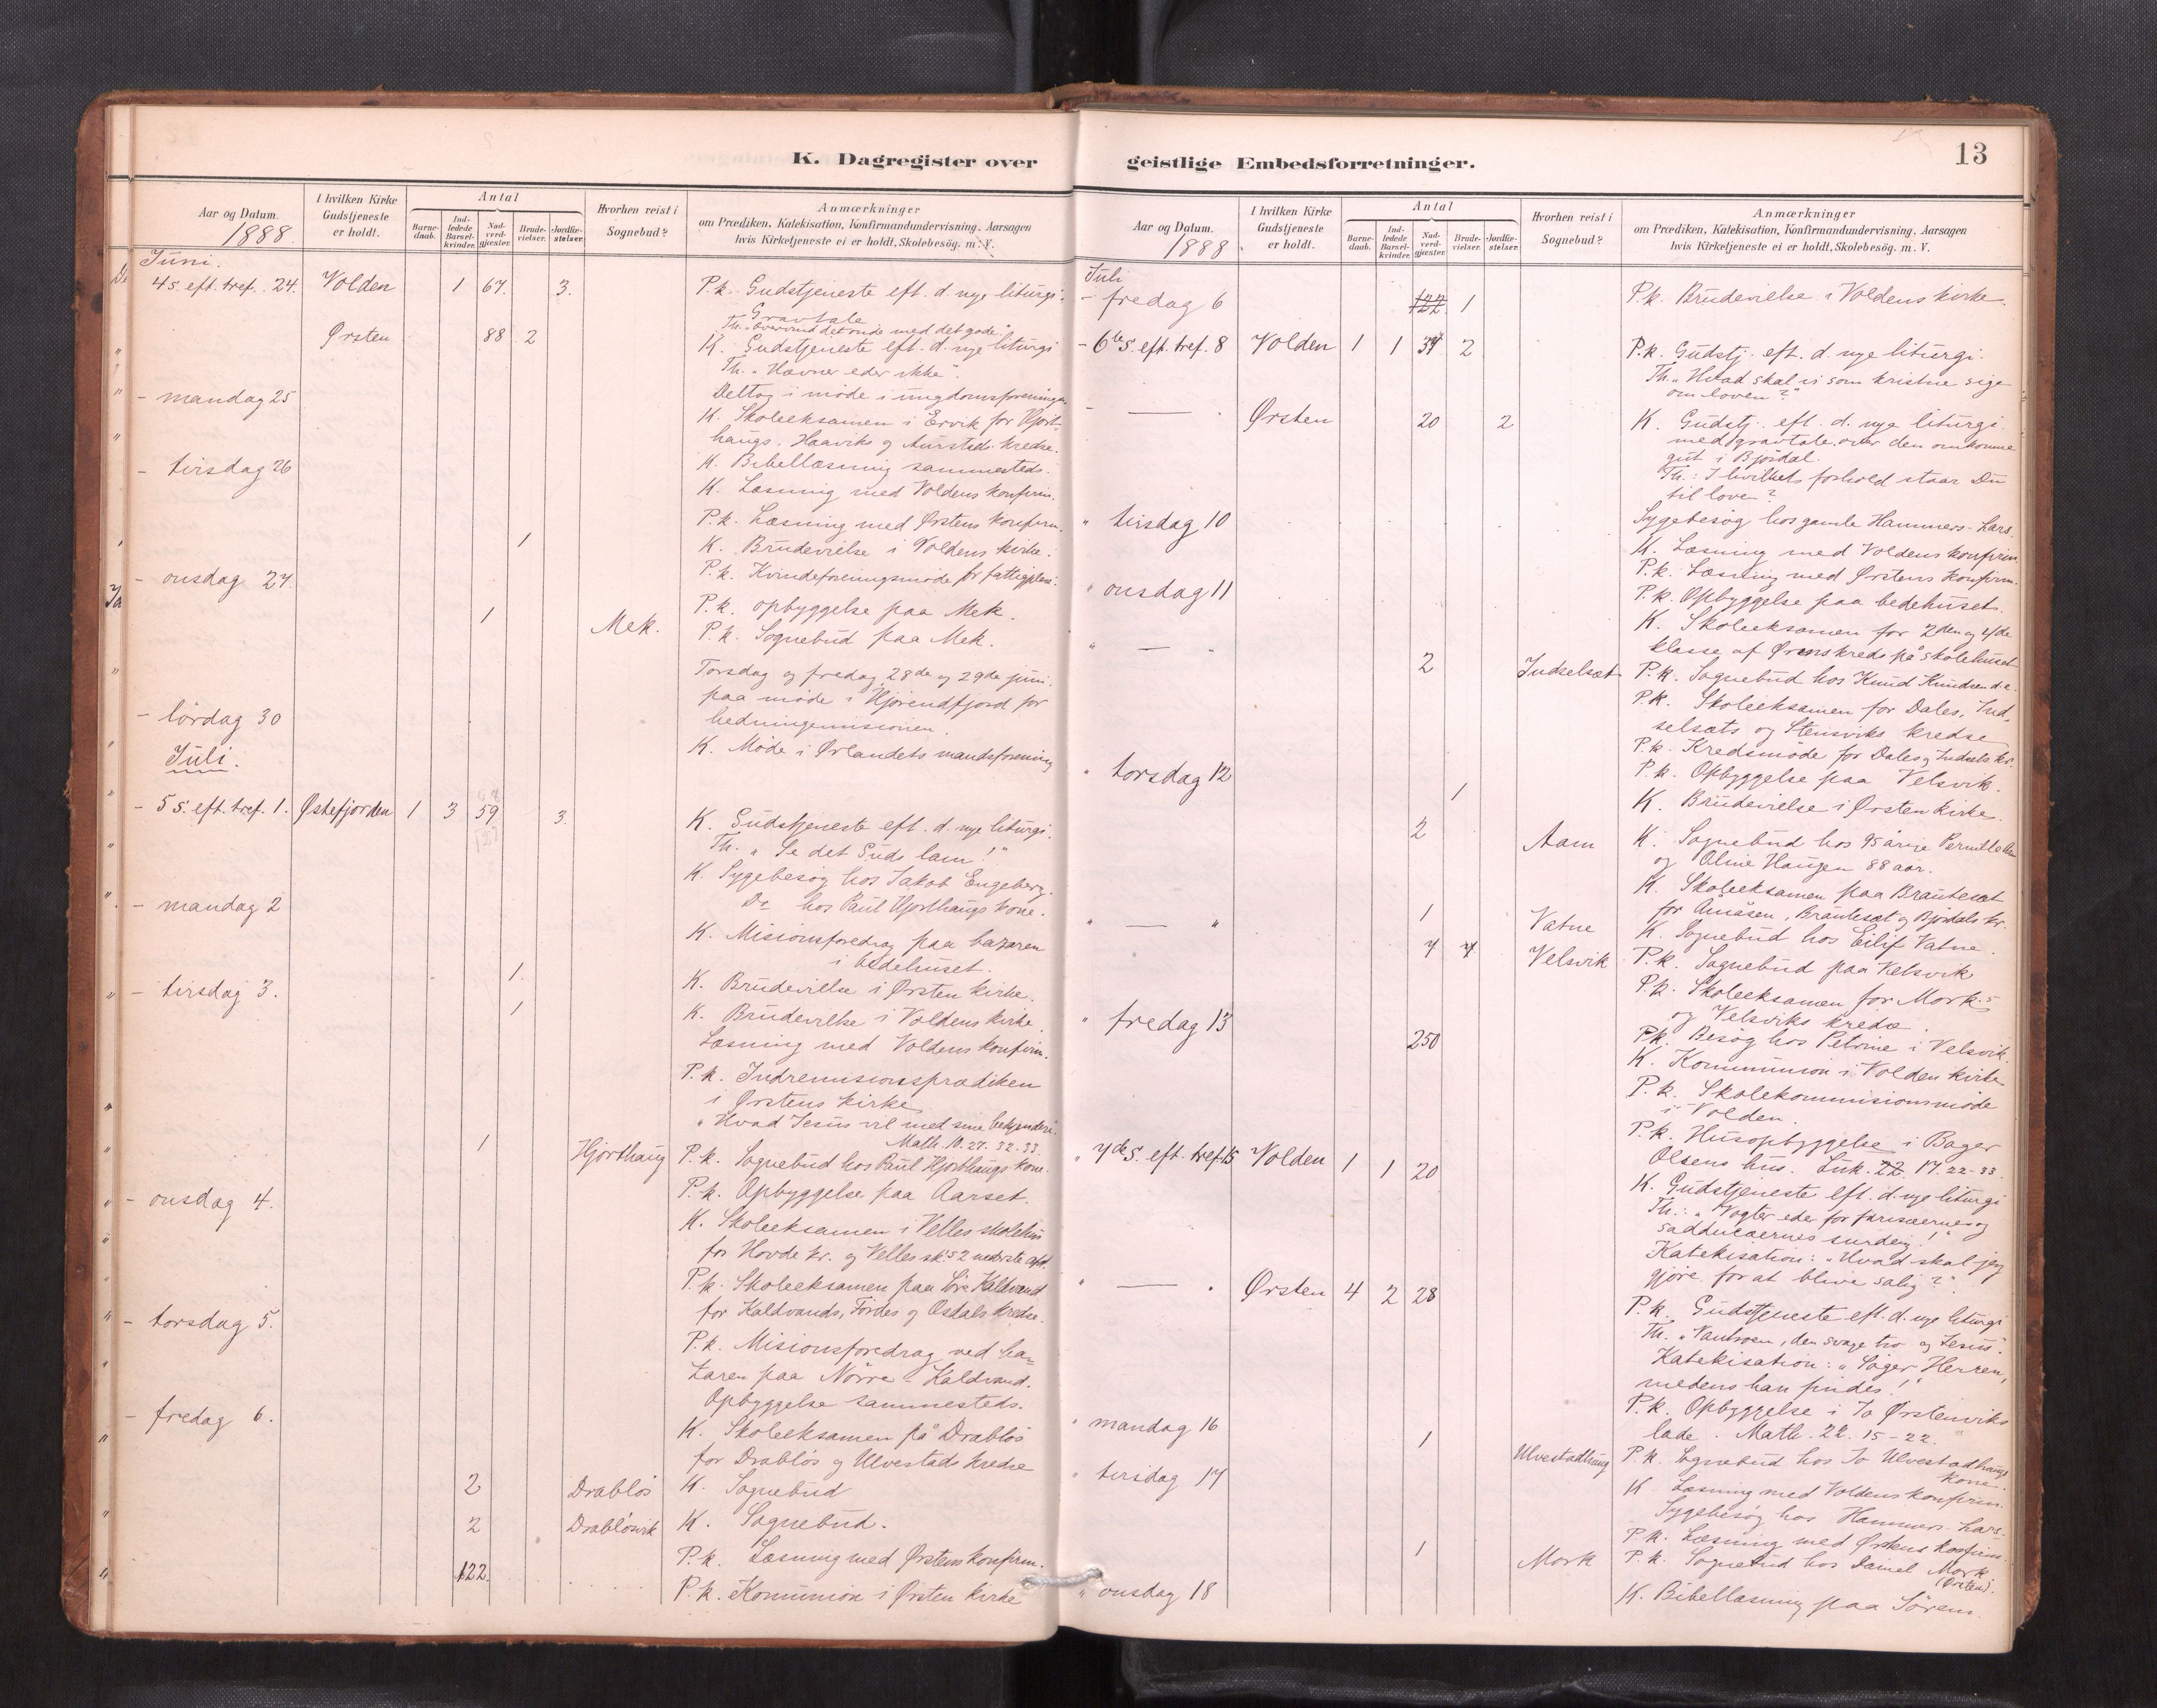 K. Dagregister over
Aar og Datum.
1888.
I hvilken Kirke
Gudstjeneste
er holdt.
Antal
Barne-
daab.
Ind-
ledede
Barsel-
kvinder.
Nad-
verd-
gjester.
Brude-
vielser.
Jordfæ-
stelser.
Hvorhen reist i
Sognebud?
Anmærkninger
om Prædiken, Katekisation, Konfirmandundervisning, Aarsagen
hvis Kirketjeneste ei er holdt, Skolebesög. m. V.
Juni.
4 s. eft. tref. 24. Volden 1 67. 3. P.k. Gudstjeneste eft. d. nye liturgi.
Gravtale
Th. "Overvind det onde med det gode."
Ørsten 88 2 K. Gudstjeneste eft. d. nye liturgi
Th. "Hævner eder ikke".
- mandag 25 Deltog i møde i ungdomsforeningen.
K. Skoleeksamen i Ervik for Hjort-
haugs, Haaviks og Aurstads kredse.
K. Bibellæsning sammesteds.
- tirsdag 26 K. Læsning med Voldens konfirm.
P.k. Læsning med Ørstens konfirm.
1 K. Brudevielse i Voldens kirke.
- onsdag 27. P.k. Kvindeforeningsmøde for fattigpleie.
P.k. opbyggelse paa Mek.
1 Mek. P.k. Sognebud paa Mek.
Torsdag og fredag 28de og 29de juni
paa møde i Hjørendfjord for
hedningemisionen.
- lördag 30 K. Møde i Ørlandets mandsforening
Juli.
- 5 s. eft. tref. 1. Østefjorden 1 3 59 3. K. Gudstjeneste eft. d. nye liturgi.
Th. "Se det Guds lam!"
K. Sygebesøg hos Jakob Engeberg.
Do hos Paul Hjorthaugs kone.
- mandag 2 K. Misionsforedrag paa bazaren
i bedehuset.
1. K. Brudevielse i Ørsten kirke.
- tirsdag 3. 1 K. Brudevielse i Voldens kirke.
Læsning med Voldens konfirm.
P.k. Indremisionsprædiken
i Ørstens kirke
"Hvad Jesus vil med sine bekjendere".
Math. 10. 27. 32-33.
1 Hjorthaug P.k. Sognebud hos Paul Hjorthaugs kone.
P.k. Opbyggelse paa Aarset.
- onsdag 4. K. Skoleeksamen i Velles skolehus
for Hovde kr. og Velles sk.s 2 nederste afd.
P.k. Skoleeksamen paa Søre Kaldvand
for Kaldvands, Fördes og Osdals kredse.
- torsdag 5. P.k. Misionsforedrag ved ba-
zaren paa Nörre-Kaldvand.
Opbyggelse sammesteds.
- fredag 6. K. Skoleeksamen på Drabløs
for Drabløs og Ulvestads kredse
2 Drabløs K. Sognebud
2 Drabløsvik K. Sognebud.
P.k. Læsning med Ørstens konfirm.
122. P.k. Komunion i Ørsten kirke
geistlige Embedsforretninger.
13
Aar og Datum.
1888.
I hvilken Kirke
Gudstjeneste
er holdt.
Antal
Barne-
daab.
Ind-
ledede
Barsel-
kvinder.
Nad-
verd-
gjester.
Brude-
vielser.
Jordfæ-
stelser.
Hvorhen reist i
Sognebud?
Anmærkninger
om Prædiken, Katekisation, Konfirmandundervisning, Aarsagen
hvis Kirketjeneste ei er holdt, Skolebesög. m. V.
Juli
- fredag 6 122 1 P.k. Brudevielse i Voldens kirke.
- 6te s. eft. tref. 8 Volden 1 1 39 2 P.k. Gudstj. eft. d. nye liturgi.
Th. "Hvad skal vi som kristne sige
om loven?"
Ørsten 20 2 K. Gudstj. eft. d. nye liturgi
med gravtale over den omkomne
gut i Bjørdal.
Th.: I hvilket forhold staar Du
til loven?
" tirsdag 10 Sygebesøg hos gamle Hammers-Lars.
K. Læsning med Voldens konfirm.
P.k. Læsning med Ørstens konfirm.
" onsdag 11 P.k. Opbyggelse paa bedehuset.
K. Skoleeksamen for 2den og 4de
klasse af Ørenskreds på skolehuset
2 Indselsæt P.k. Sognebud hos Knud Knudsen d.e.
P.k. Skoleeksamen for Dales, Ind-
selsæts og Stensviks kredse
P.k. Kredsmøde for Dales og Indsels. kr.
" torsdag 12 P.k. Opbyggelse paa Velsvik.
1 K. Brudevielse i Ørsten kirke.
2 Aam K. Sognebud hos 95 årige Pernille Aam
og Oline Haugen 88 aar.
K. Skoleeksamen paa Brautesæt
for Åmåsen, Brautesæt og Bjørdals kr.
1 Vatne K. Sognebud hos Eilif Vatne.
7 Velsvik P.k. Sognebud paa Velsvik
P.k. Skoleeksamen for Mork-
og Velsviks kredse.
" fredag 13 P.k. Besøg hos Petrine i Velsvik.
250 K. Kommunion i Volden kirke
P.k. Skolekommisionsmøde
i Volden.
P.k. Husopbyggelse i Bager
Olsens hus. Luk. 17. 22-33
" 7de s. eft. tref. 15 Volden 1 1 20 K. Gudstjeneste eft. d. nye liturgi
Th.: "Vogter eder for farisæernes og
sadducæernes surdeig!"
Katekisation: "Hvad skal jeg
gjøre for at blive salig?"
Ørsten 4 2 28 P.k. Gudstjeneste eft. d. nye liturgi
Th. "Vantroen, den svage tro og Jesus".
Katekisation: "Søger Herren,
medens han findes!"
P.k. Opbyggelse i Jo Ørstenviks
lade. Math. 22. 15-22.
" mandag 16 1 Ulvestadhaug P.k. Sognebud hos Jo Ulvestadhaugs
kone.
" tirsdag 17 K. Læsning med Voldens konfirm.
Sygebesøg hos Hammers-Lars.
P.k. Læsning med Ørstens konfirm.
1 Mork P.k. Sognebud hos Daniel Mork
(Ørsten).
" onsdag 18 K. Bibellæsning paa Sörem.